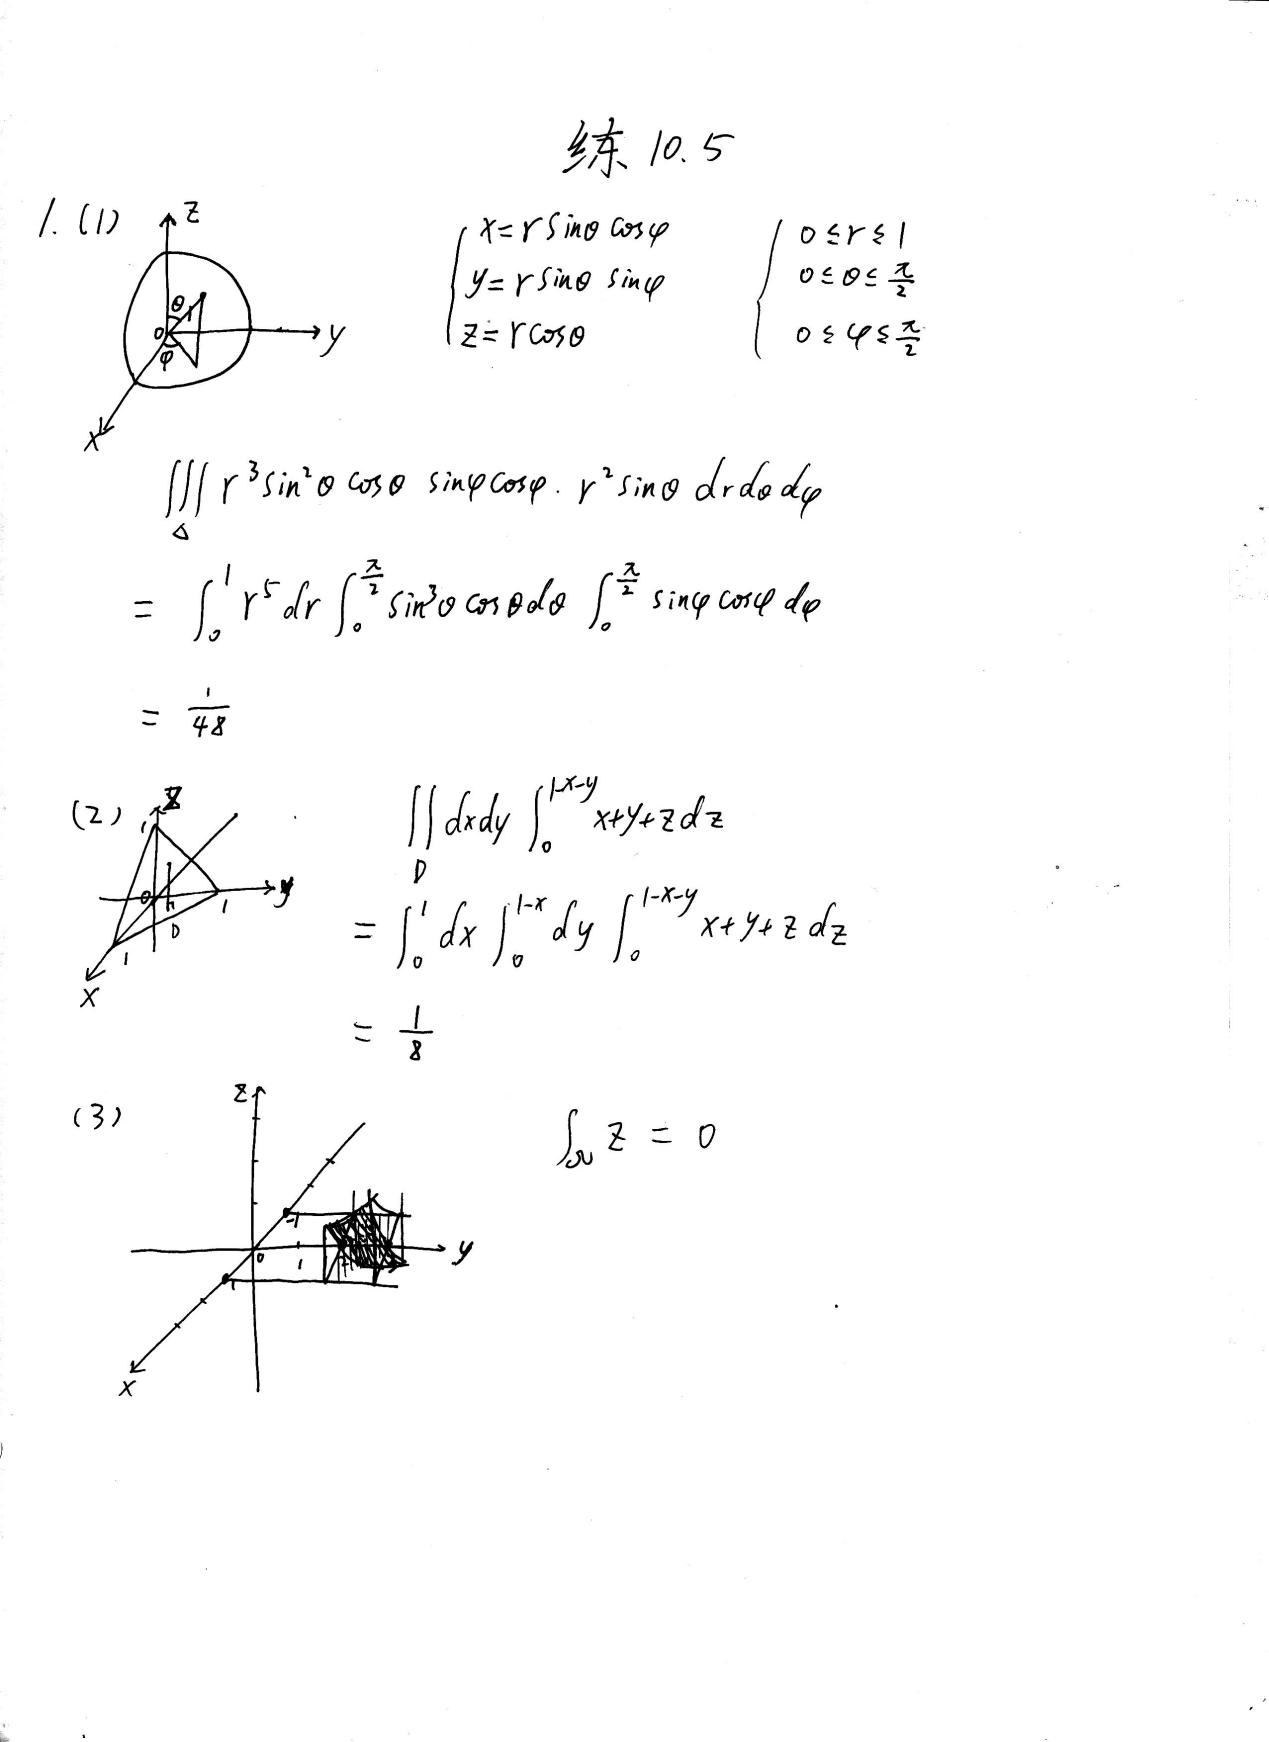 练 10.5
1. (1) z y x 0 θ φ 1
{ x = r sinθ cosφ
y = r sinθ sinφ
z = r cosθ
{ 0 ≤ r ≤ 1
0 ≤ θ ≤ π/2
0 ≤ φ ≤ π/2
∭_Δ r³ sin²θ cosθ sinφ cosφ · r² sinθ dr dθ dφ
= ∫₀¹ r⁵ dr ∫₀^(π/2) sin³θ cosθ dθ ∫₀^(π/2) sinφ cosφ dφ
= 1/48
(2) z 1 0 y 1 D 1 x
∬_D dx dy ∫₀^(1-x-y) x+y+z dz
= ∫₀¹ dx ∫₀^(1-x) dy ∫₀^(1-x-y) x+y+z dz
= 1/8
(3) z -1 0 1 y 1 x
∫_Ω z = 0